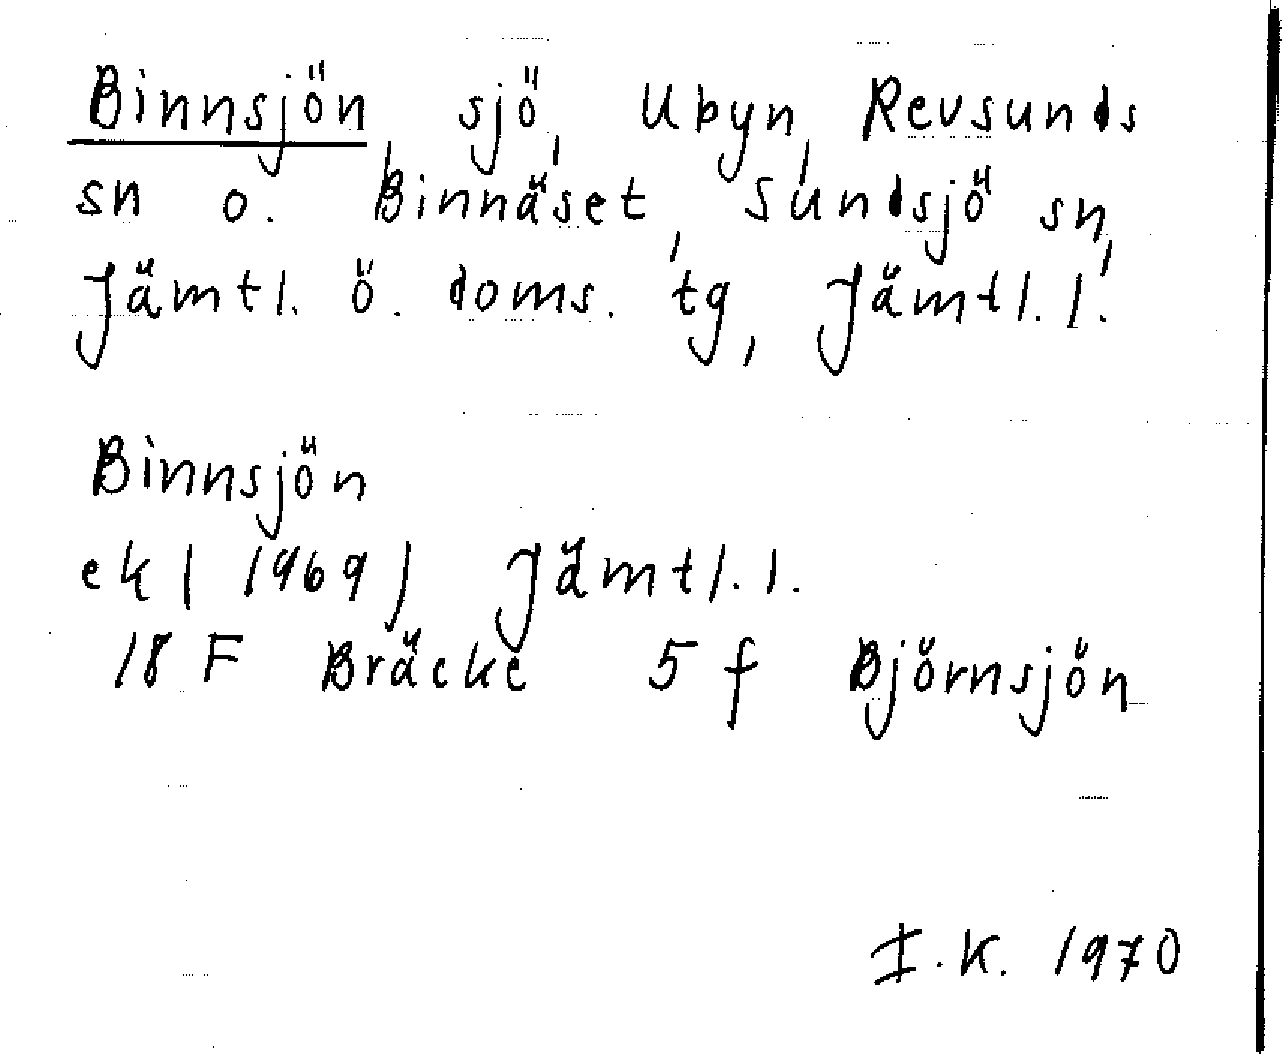 Binnsjön, sjö, Ubyn, Revsunds
sn o. Binnäset, Sundsjö sn,
Jämtl. ö. doms. tg, Jämtl. l.
Binnsjön
ek ( 1969 ) Jämtl. l.
18 F Bräcke 5 f Björnsjön
I.K. 1970